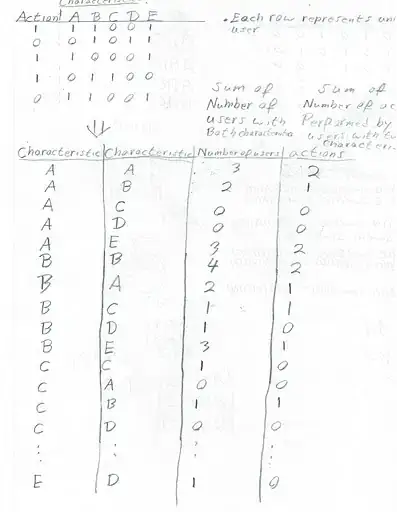 Characteristic
Action A B C D E . Each row represents uni
user
1 1 1 0 0 1
0 0 1 0 1 1
1 1 0 0 0 1
1 0 1 1 0 0
0 1 1 0 0 1
Sum of Sum of
Number of Number of ac
users with Performed by
Both characteristics users with tw
Characteri
Characteristic Characteristic Number of users actions
A A 3 2
A B 2 1
A C 0 0
A D 0 0
A E 3 2
B B 4 2
B A 2 1
B C 1 1
B D 1 0
B E 3 1
C C 1 0
C A 0 0
C B 1 1
C D 0 0
E D 1 0